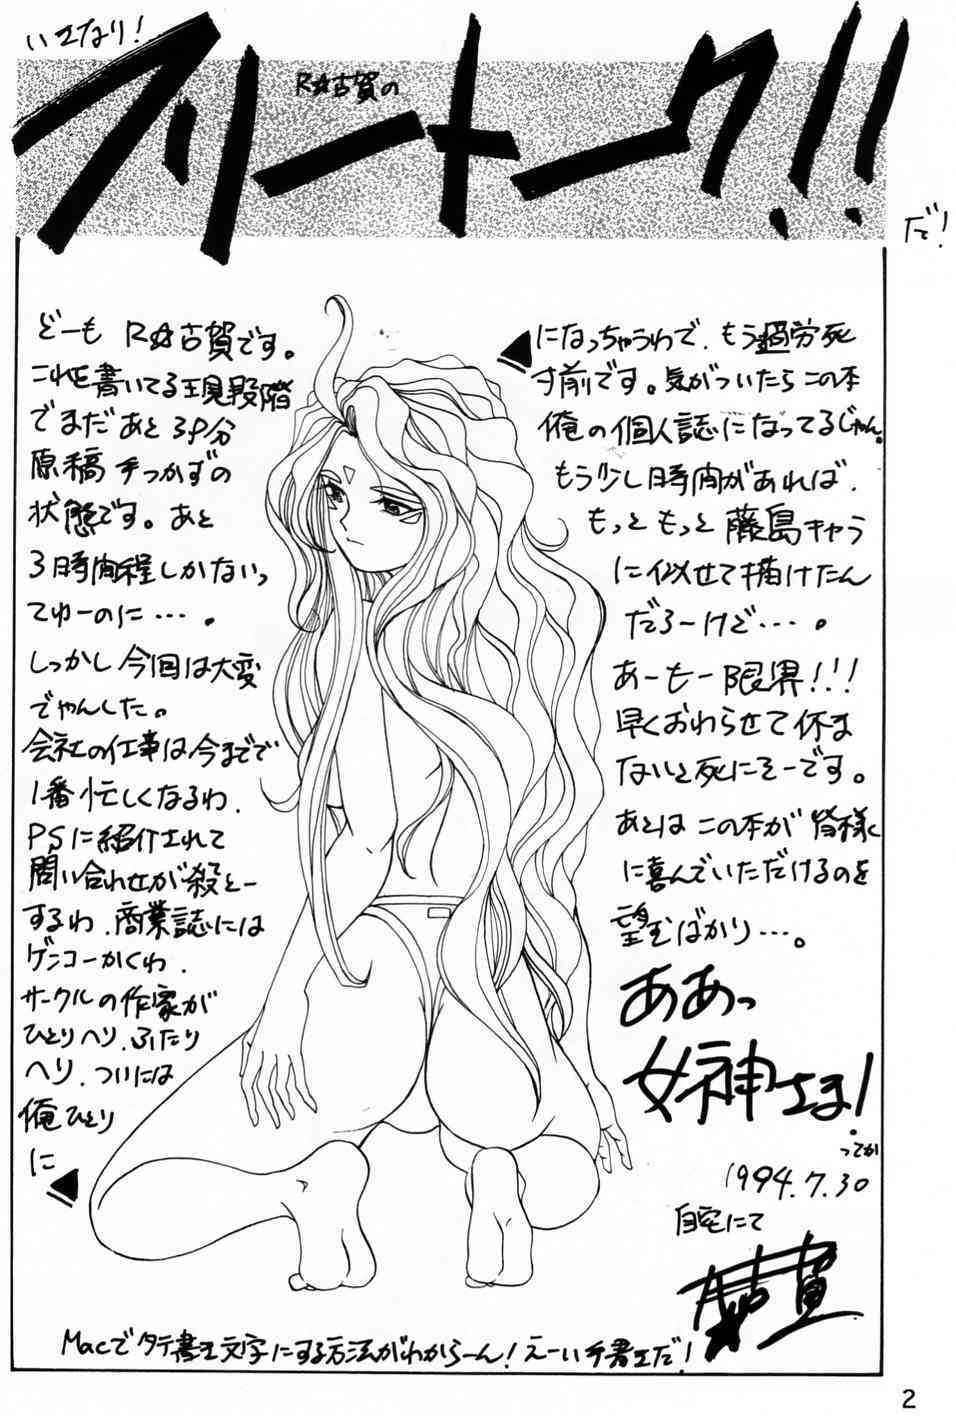 いきなり!
R☆古賀の
フリートーク!!
だ!
どーも R☆古賀です。
これを書いてる現段階
でまだあと39分
原稿手つかずの
状態です。あと
3時間程しかないっ
てゆーのに…。
しっかし今回は大変
でやんした。
会社の仕事は今までで
1番忙しくなるわ、
PSに紹介されて
問い合わせが殺とー
するわ、商業誌には
ゲンコーかくわ、
サークルの作家が
ひとりヘリ、ふたり
ヘリ、ついには
俺ひとり
に
になっちゃうわで、もう過労死
寸前です。気がついたらこの本
俺の個人誌になってるじゃん。
もう少し時間があれば、
もっともっと藤島キャラ
に似せて描けたん
だろーけど…。
あーもー限界!!!
早くおわらせて休ま
ないと死にそーです。
あとはこの本が皆様
に喜んでいただけるのを
望むばかり…。
ああっ
女神さま!
ってか
1994.7.30
自宅にて
R☆古賀
Macでタテ書き文字にする方法がわからーん!えーい手書きだ!
2